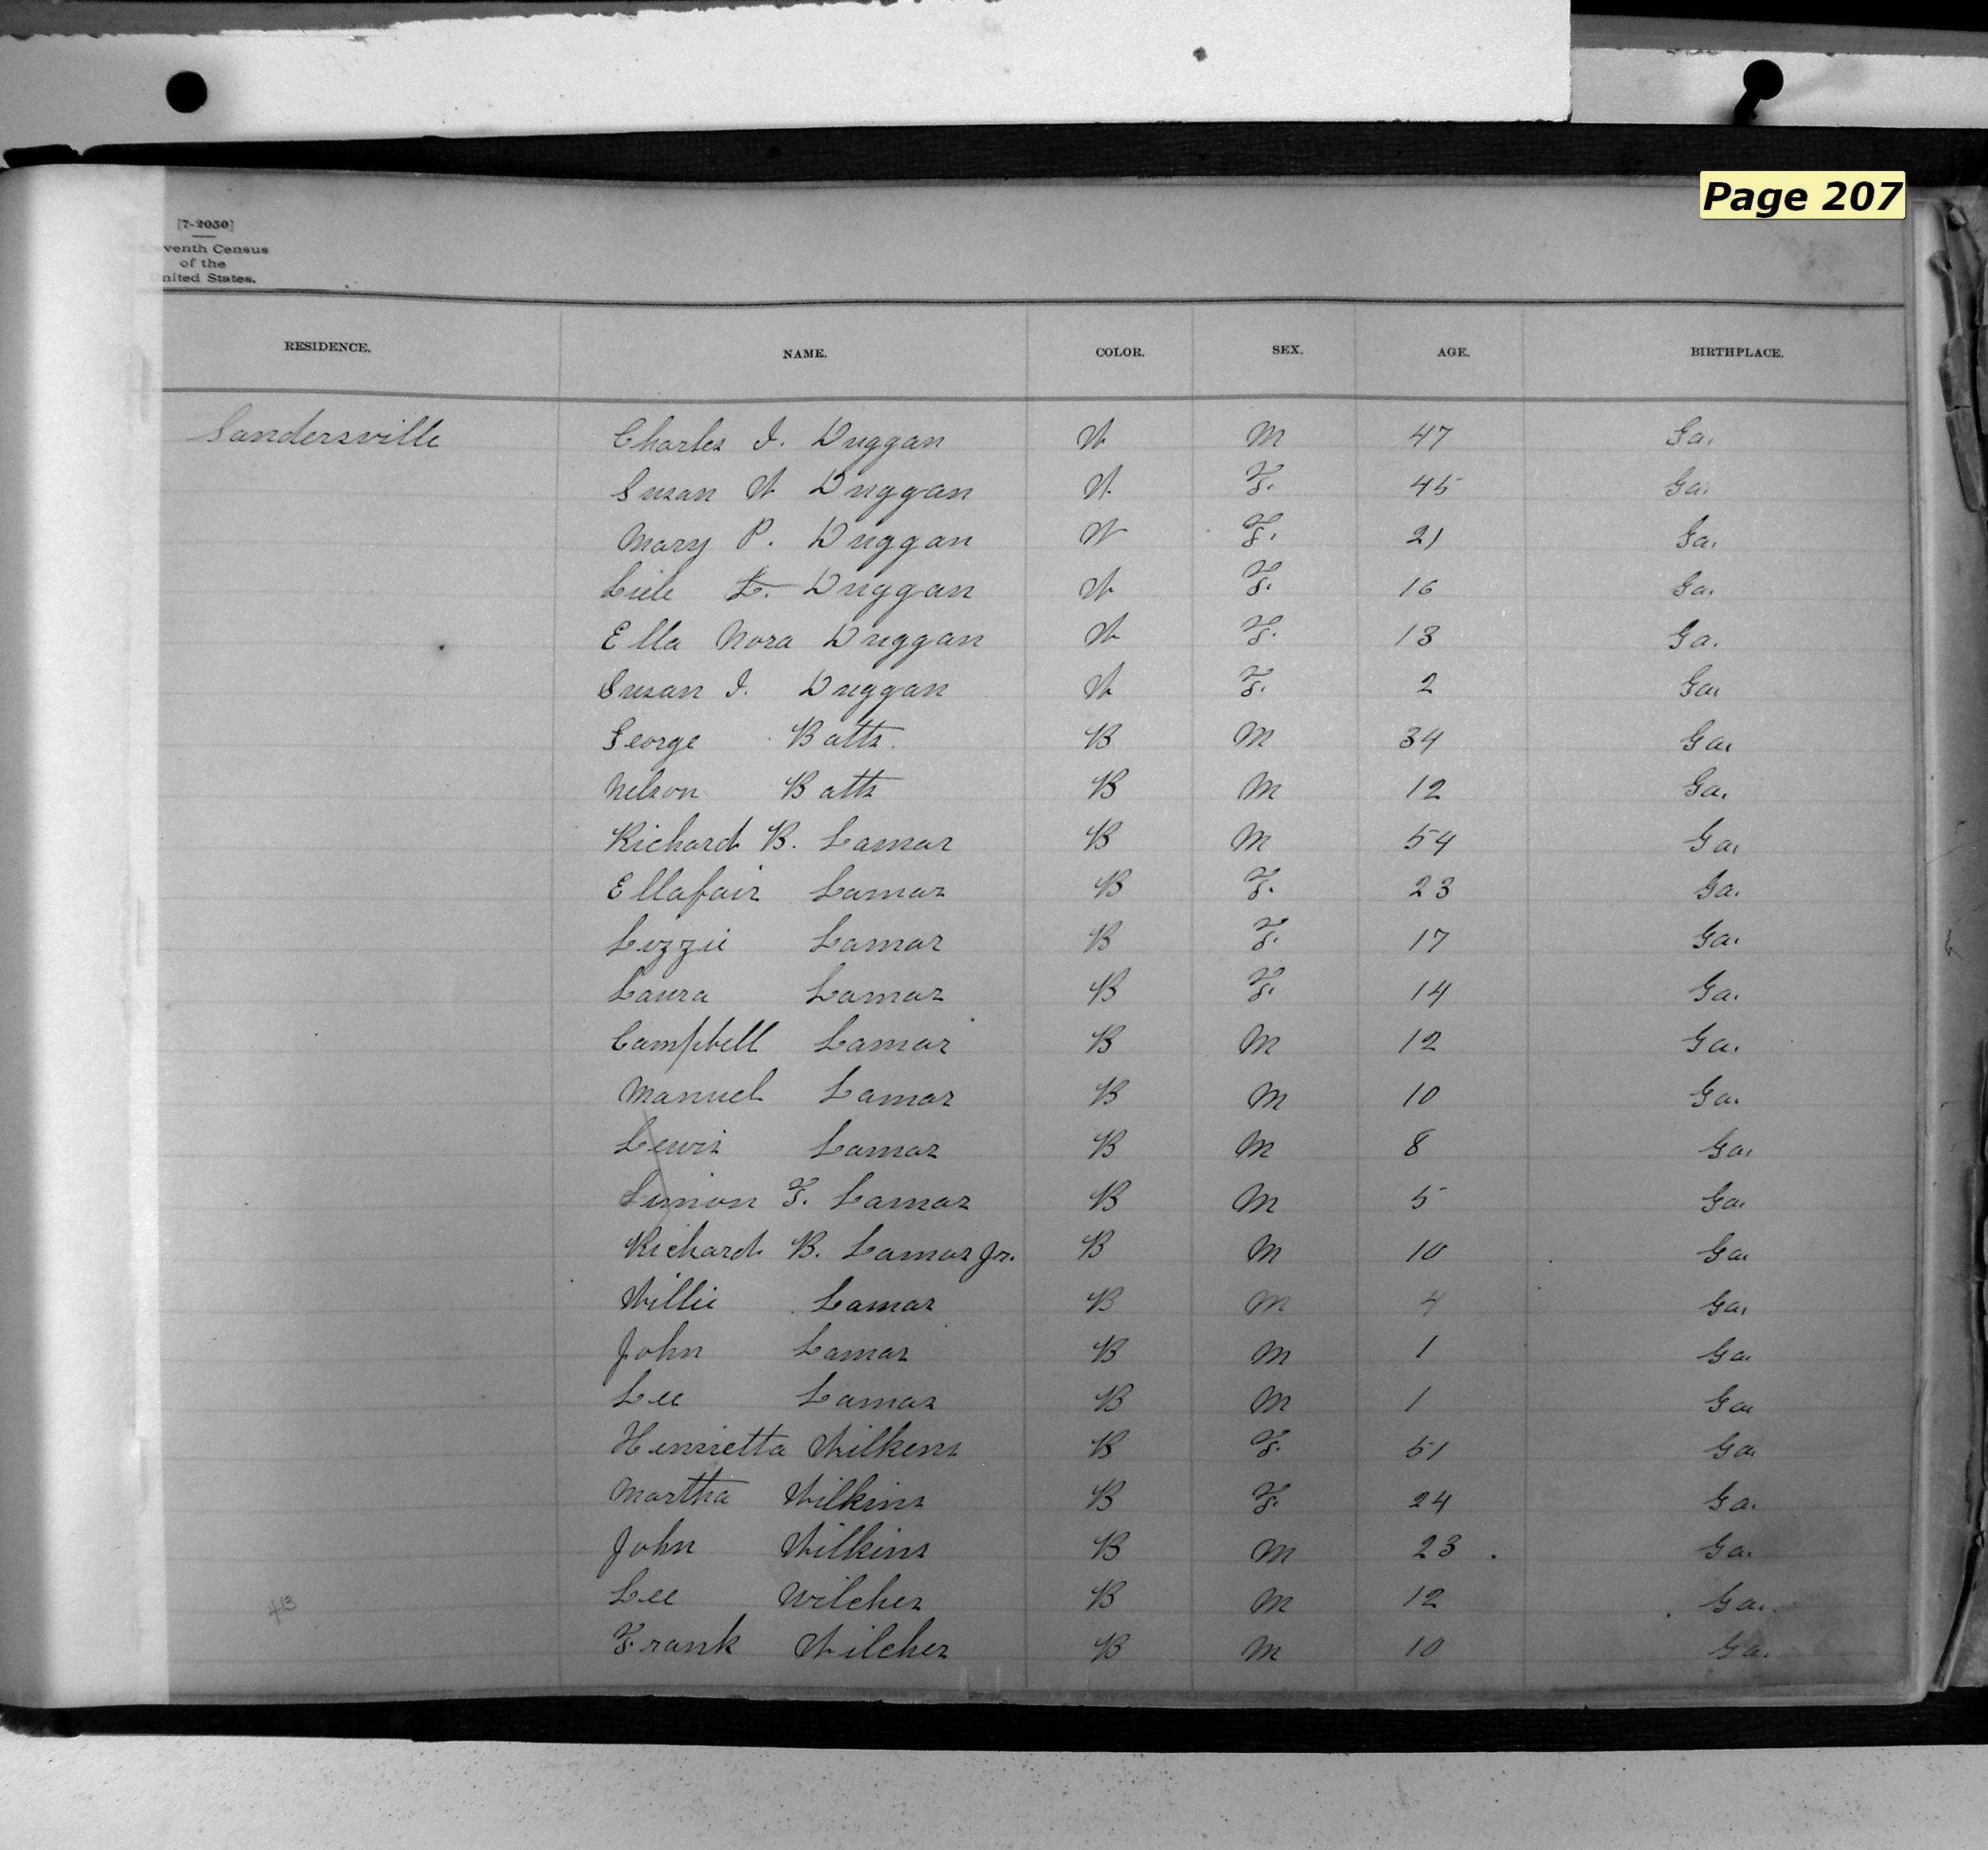 Page 207
[7-2050]
venth Census
of the
nited States.
RESIDENCE. NAME. COLOR. SEX. AGE. BIRTHPLACE.
Sandersville Charles I. Duggan W M 47 Ga.
Susan W Duggan W F. 45 Ga.
Mary P. Duggan W F. 21 Ga.
L. Duggan W F. 16 Ga.
Ella Nora Duggan W F. 13 Ga.
Susan I. Duggan W F. 2 Ga.
George Batts B M 34 Ga.
Nelson Batts B M 12 Ga.
Richard B. Lamar B M 54 Ga.
Ellafair Lamar B F. 23 Ga.
Lizzie Lamar B F. 17 Ga.
Laura Lamar B F. 14 Ga.
Campbell Lamar B M 12 Ga.
Manuel Lamar B M 10 Ga.
Lewis Lamar B M 8 Ga.
Simon F. Lamar B M 5 Ga.
Richard B. Lamar Jr. B M 10 Ga.
Willie Lamar B M 4 Ga.
John Lamar B M 1 Ga.
Lee Lamar B M 1 Ga.
Henrietta Wilkens B F. 51 Ga.
Martha Wilkins B F. 24 Ga.
John Wilkins B M 23 Ga.
Lee Wilcher B M 12 Ga.
Frank Wilcher B M 10 Ga.